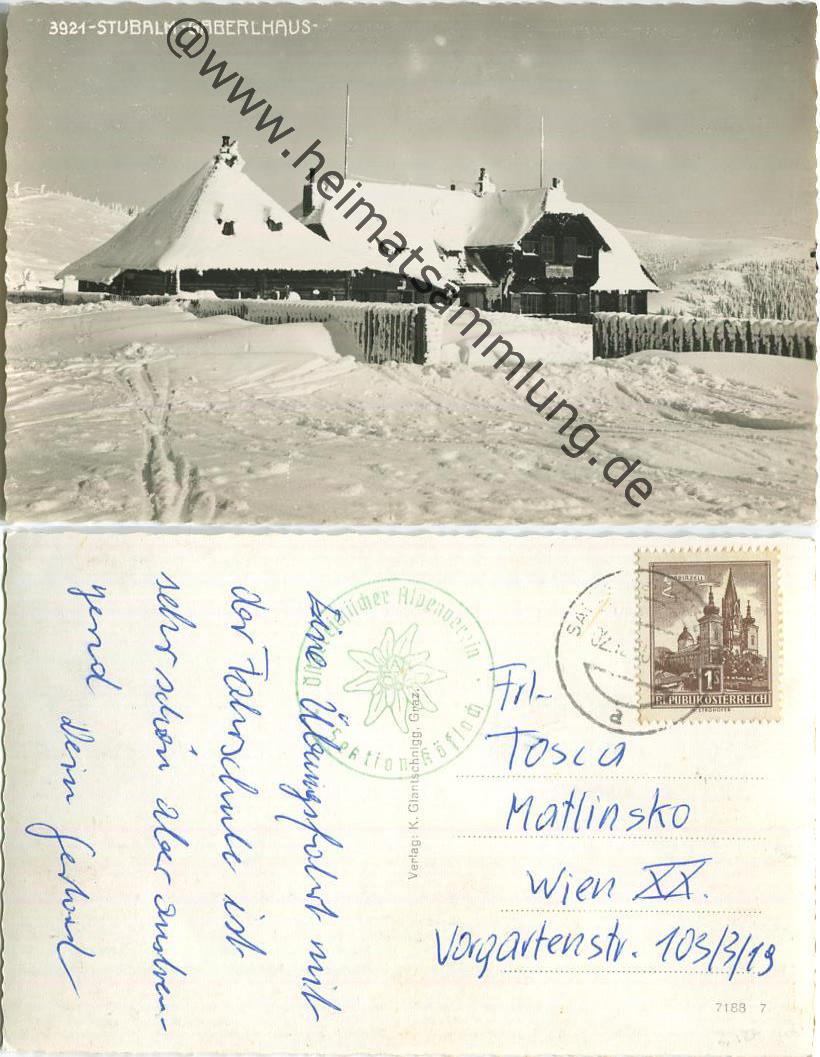 3921-STUBALM-GABERLHAUS-
@www.heimatsammlung.de
Eine Übungsfahrt mit
der Fahrschule ist
sehr schön aber anstren-
gend Dein Gerhard
Österreichischer Alpenverein
Sektion Köflach
Verlag: K. Glantschnigg, Graz.
1S
REPUBLIK ÖSTERREICH
a
Frl.
Tosca
Matlinsko
Wien XX.
Vorgartenstr. 103/3/19
7188 7